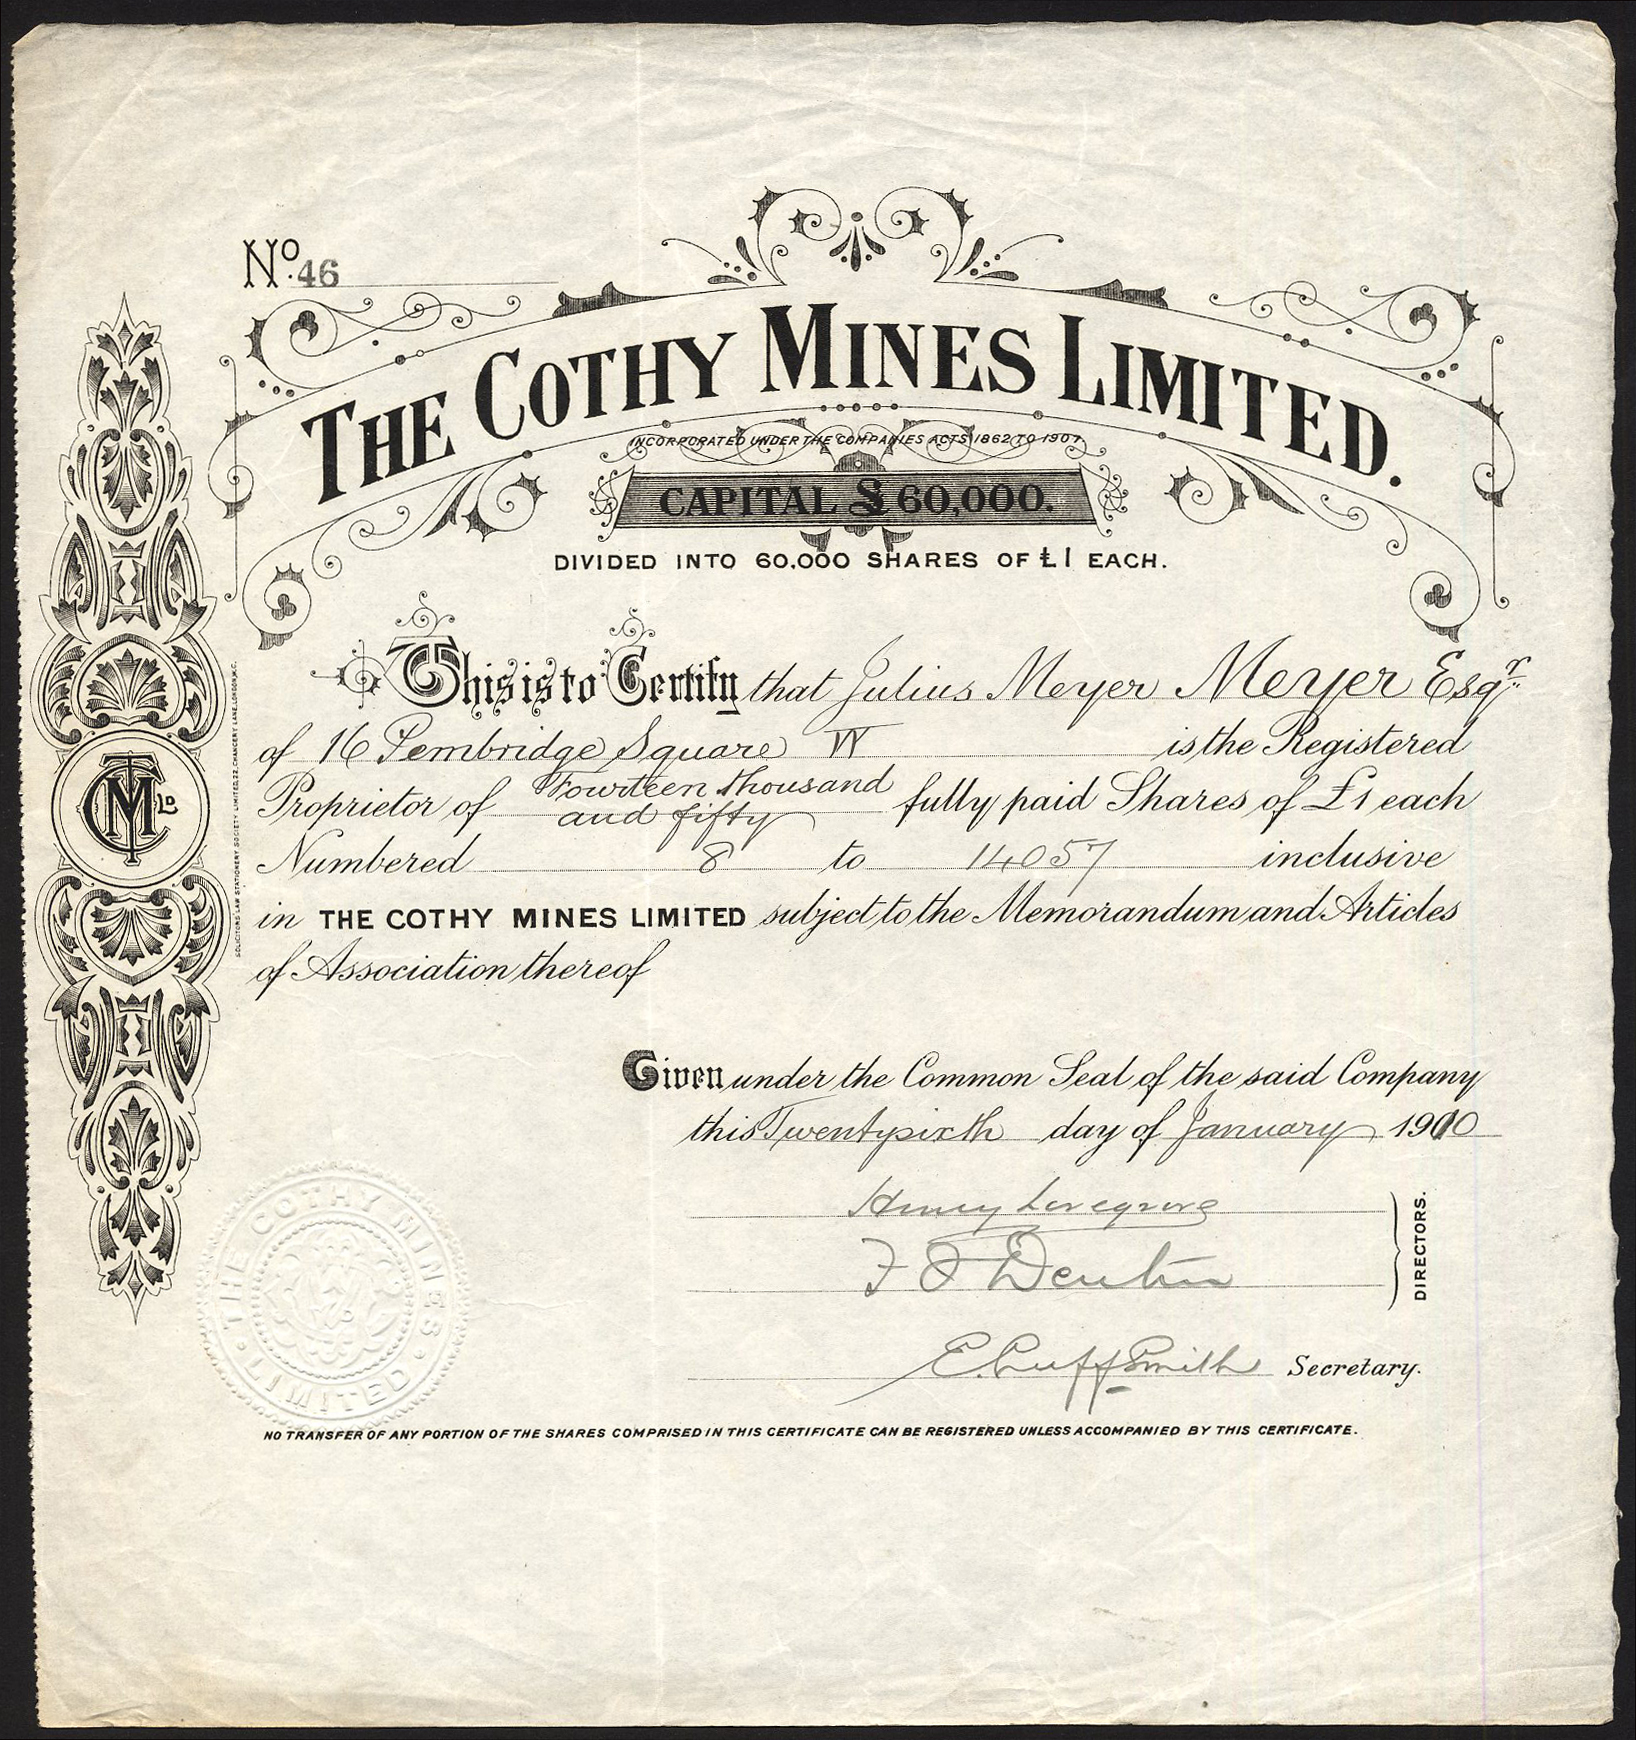 No. 46
THE COTHY MINES LIMITED.
INCORPORATED UNDER THE COMPANIES ACTS 1862 TO 1907.
CAPITAL £ 60,000.
DIVIDED INTO 60,000 SHARES OF £1 EACH.
This is to Certify that Julius Meyer Meyer Esqr.
of 16 Pembridge Square W is the Registered
Proprietor of Fourteen thousand and fifty fully paid Shares of £1 each
Numbered 8 to 14057 inclusive
in THE COTHY MINES LIMITED subject to the Memorandum and Articles
of Association thereof
Given under the Common Seal of the said Company
this Twentysixth day of January 1910
Henry Lovegrove
F J Denton
DIRECTORS.
E. Cuff Smith Secretary.
NO TRANSFER OF ANY PORTION OF THE SHARES COMPRISED IN THIS CERTIFICATE CAN BE REGISTERED UNLESS ACCOMPANIED BY THIS CERTIFICATE.
THE COTHY MINES LIMITED
CML LD
SOLICITORS LAW STATIONERY SOCIETY LIMITED, 22, CHANCERY LANE, LONDON, W.C.